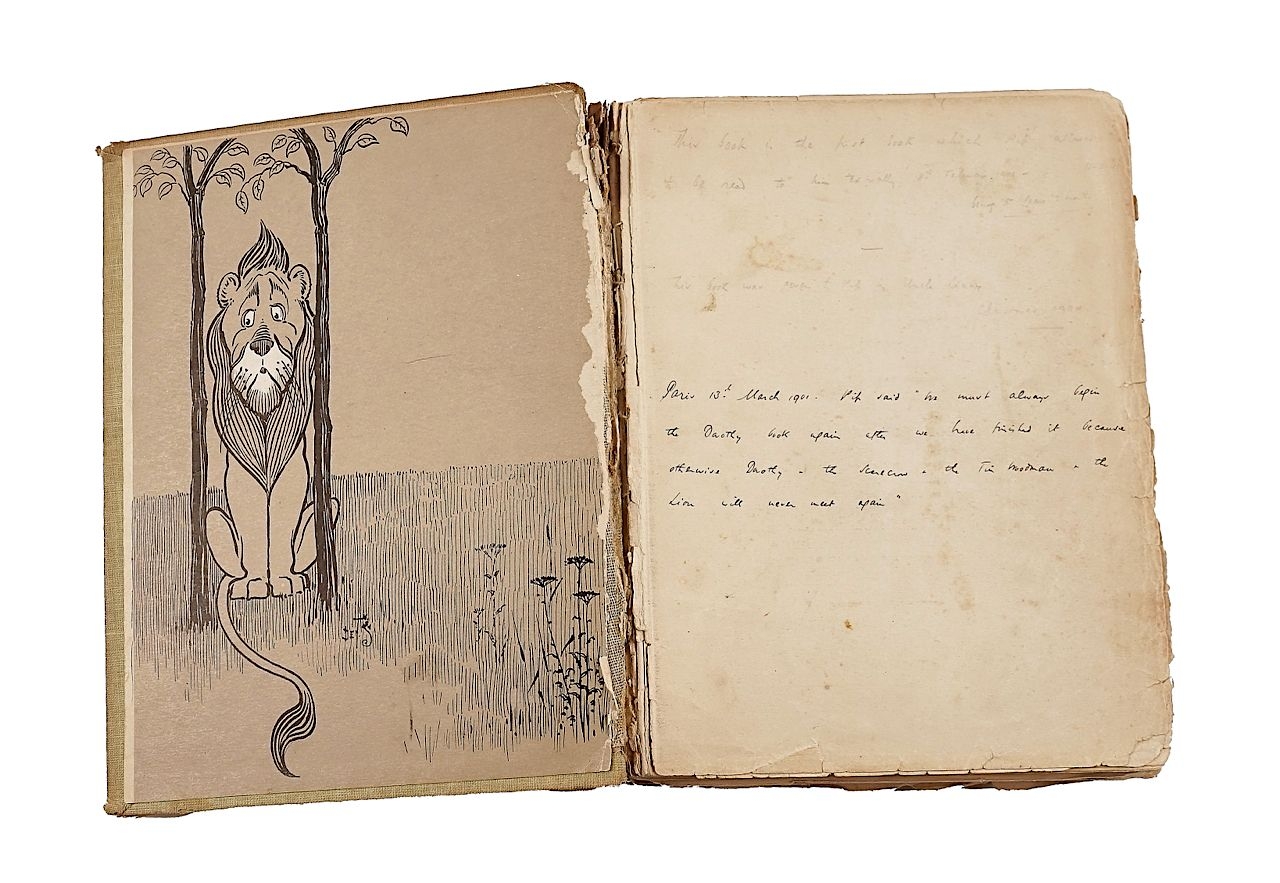 This book is the first book which Pip
to be read to him
This book was given to Pip by Uncle
Paris 13th March 1901. Pip said "We must always begin
the Dorothy book again after we have finished it because
otherwise Dorothy - the Scarecrow - the Tin Woodman - the
Lion will never meet again"